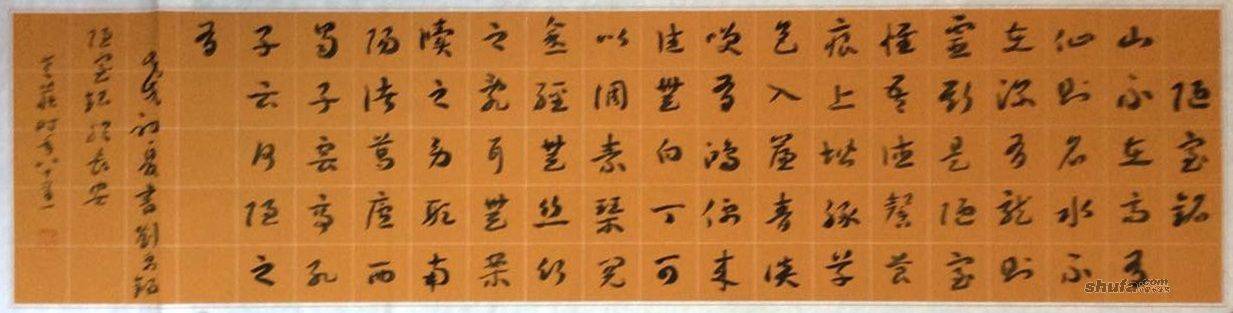 陋室銘
山不在高有
仙則名水不
在深有龍則
靈斯是陋室
惟吾德馨苔
痕上階綠草
色入簾青談
笑有鴻儒來
往無白丁可
以調素琴閱
金經無絲竹
之亂耳無案
牘之勞形南
陽諸葛廬西
蜀子雲亭孔
子云何陋之
有
初夏書劉禹錫
陋室銘於長安
時年八十
shufa.com